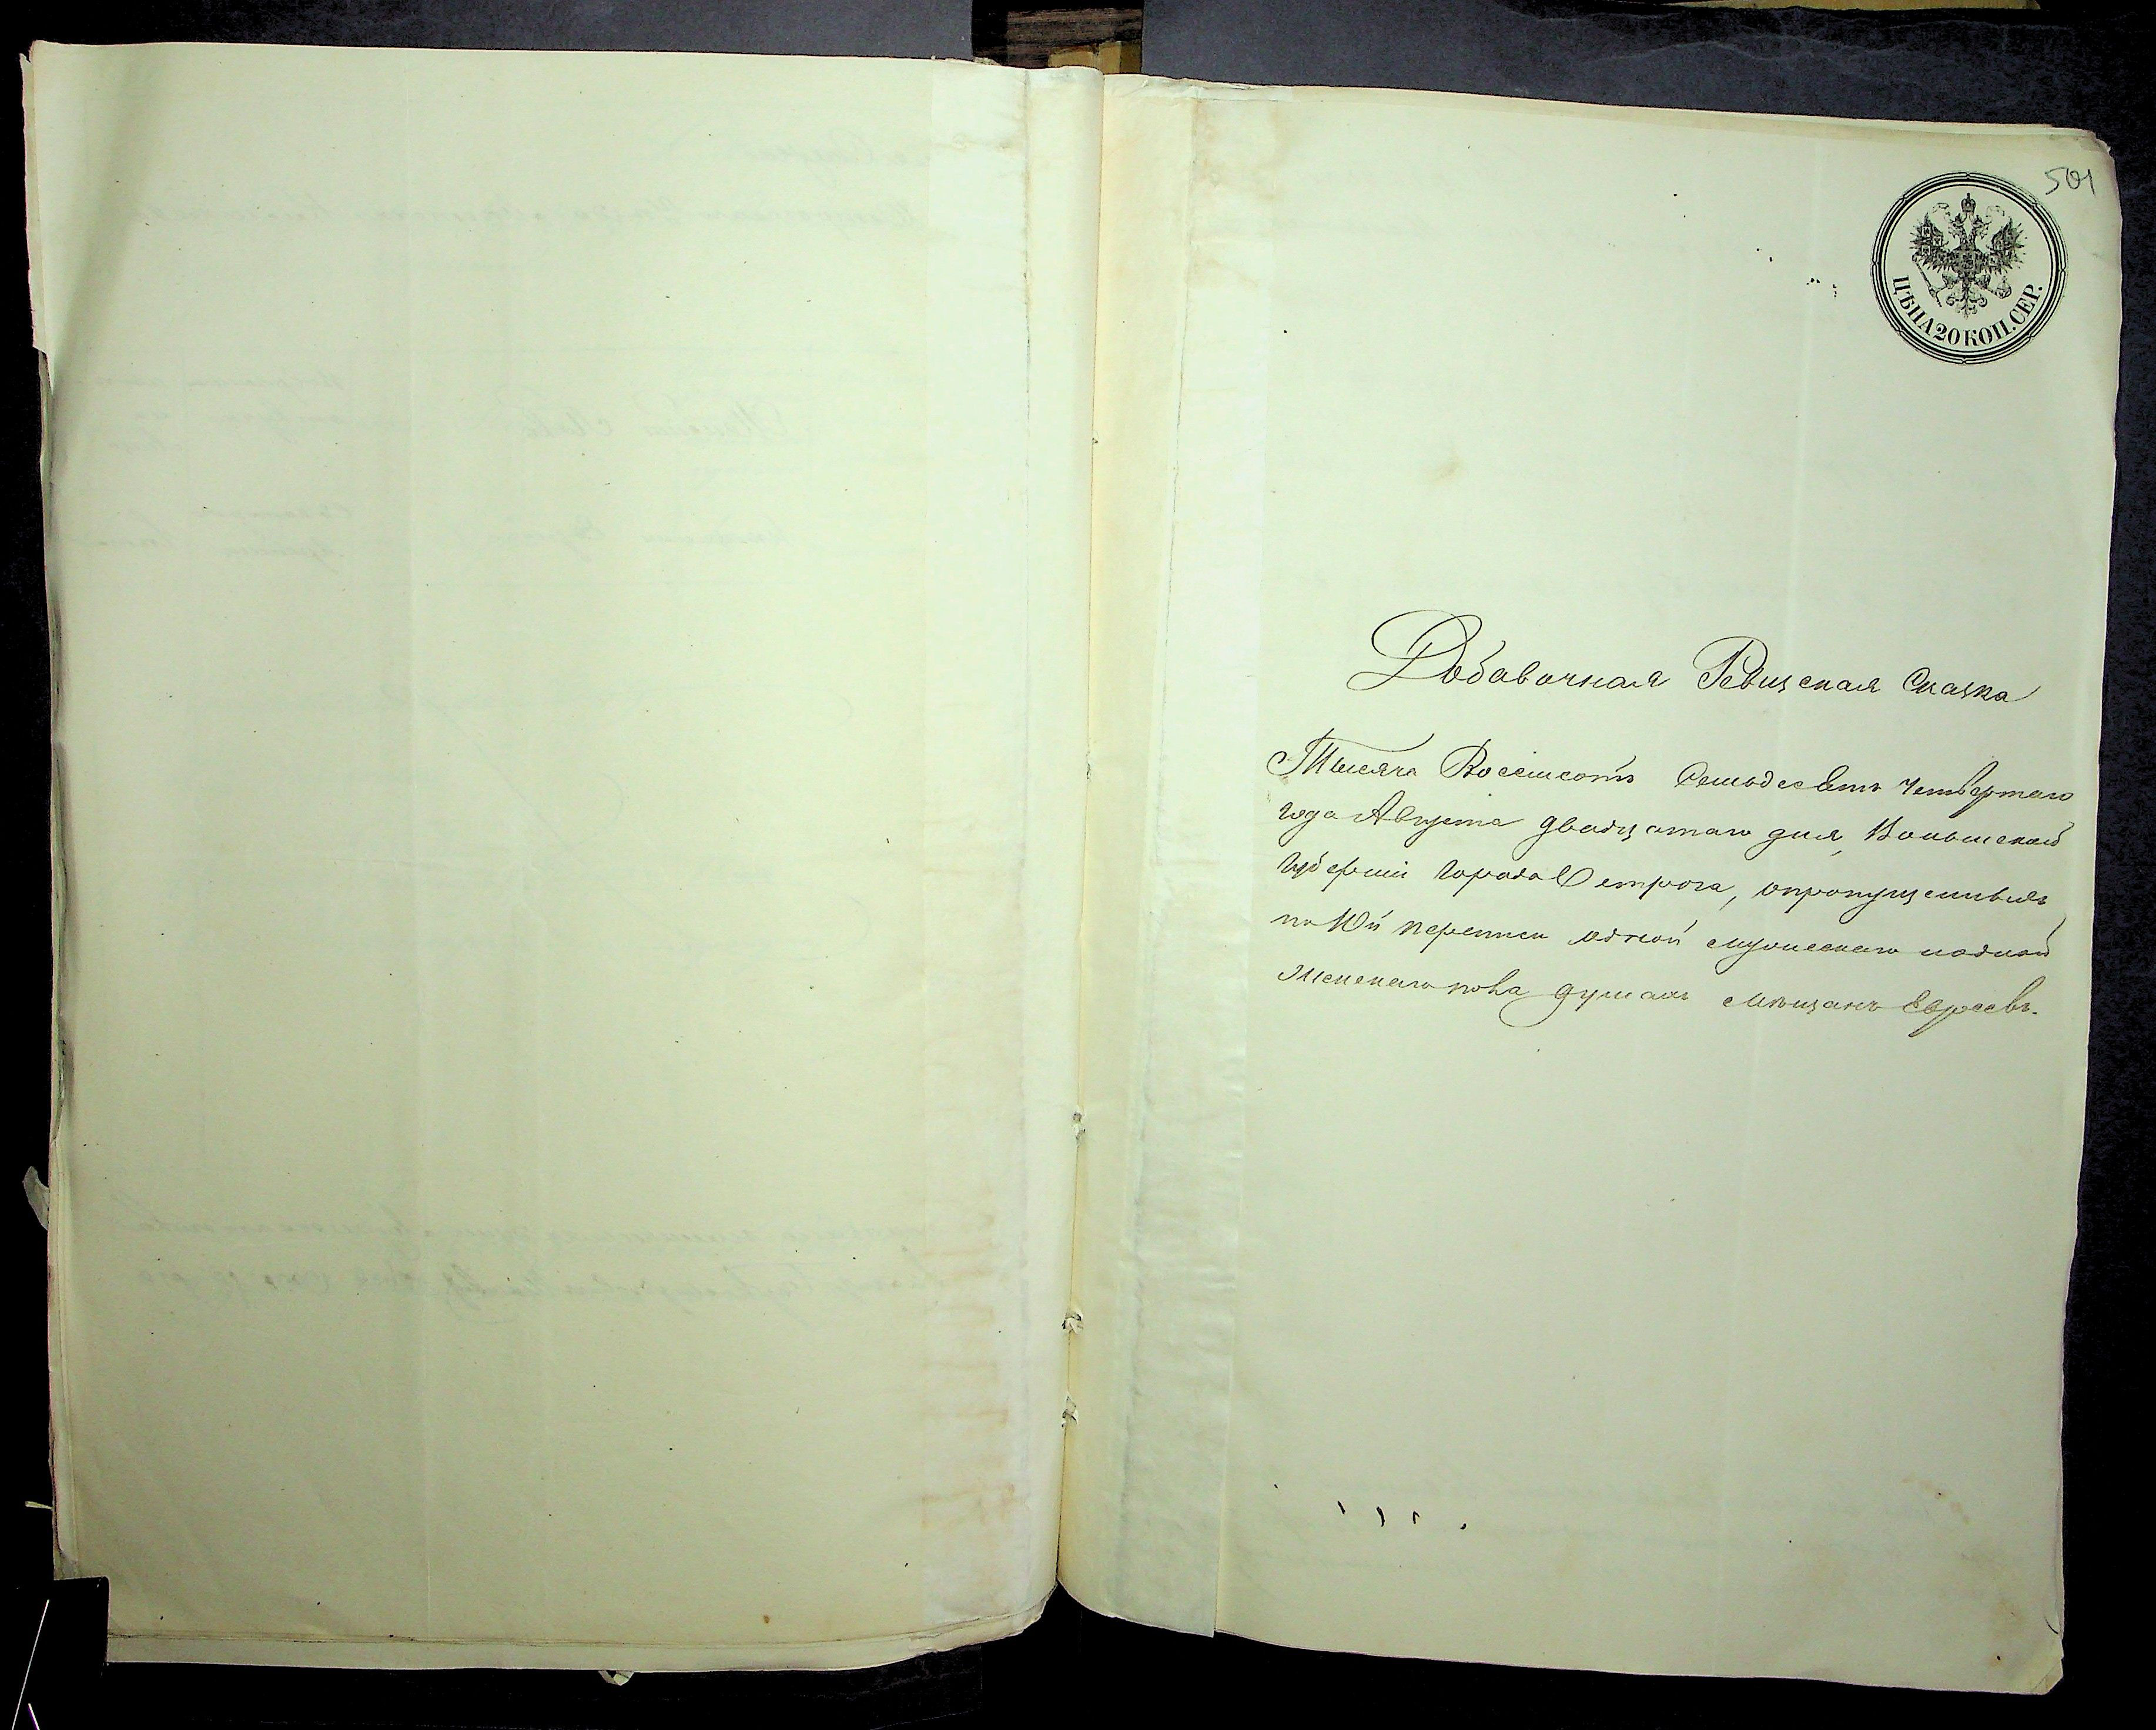 501
ЦѢНА 20 КОП. СЕР.
Добавочная Ревизская Сказка
Тысяча Восемсотъ Семьдесятъ Четвертаго
года Августа двадцатаго дня, Волынской
губерніи города Острога, о пропущенныхъ
по 10й переписи одной мужескаго и одной
женскаго пола душахъ мѣщанъ Евреевъ.